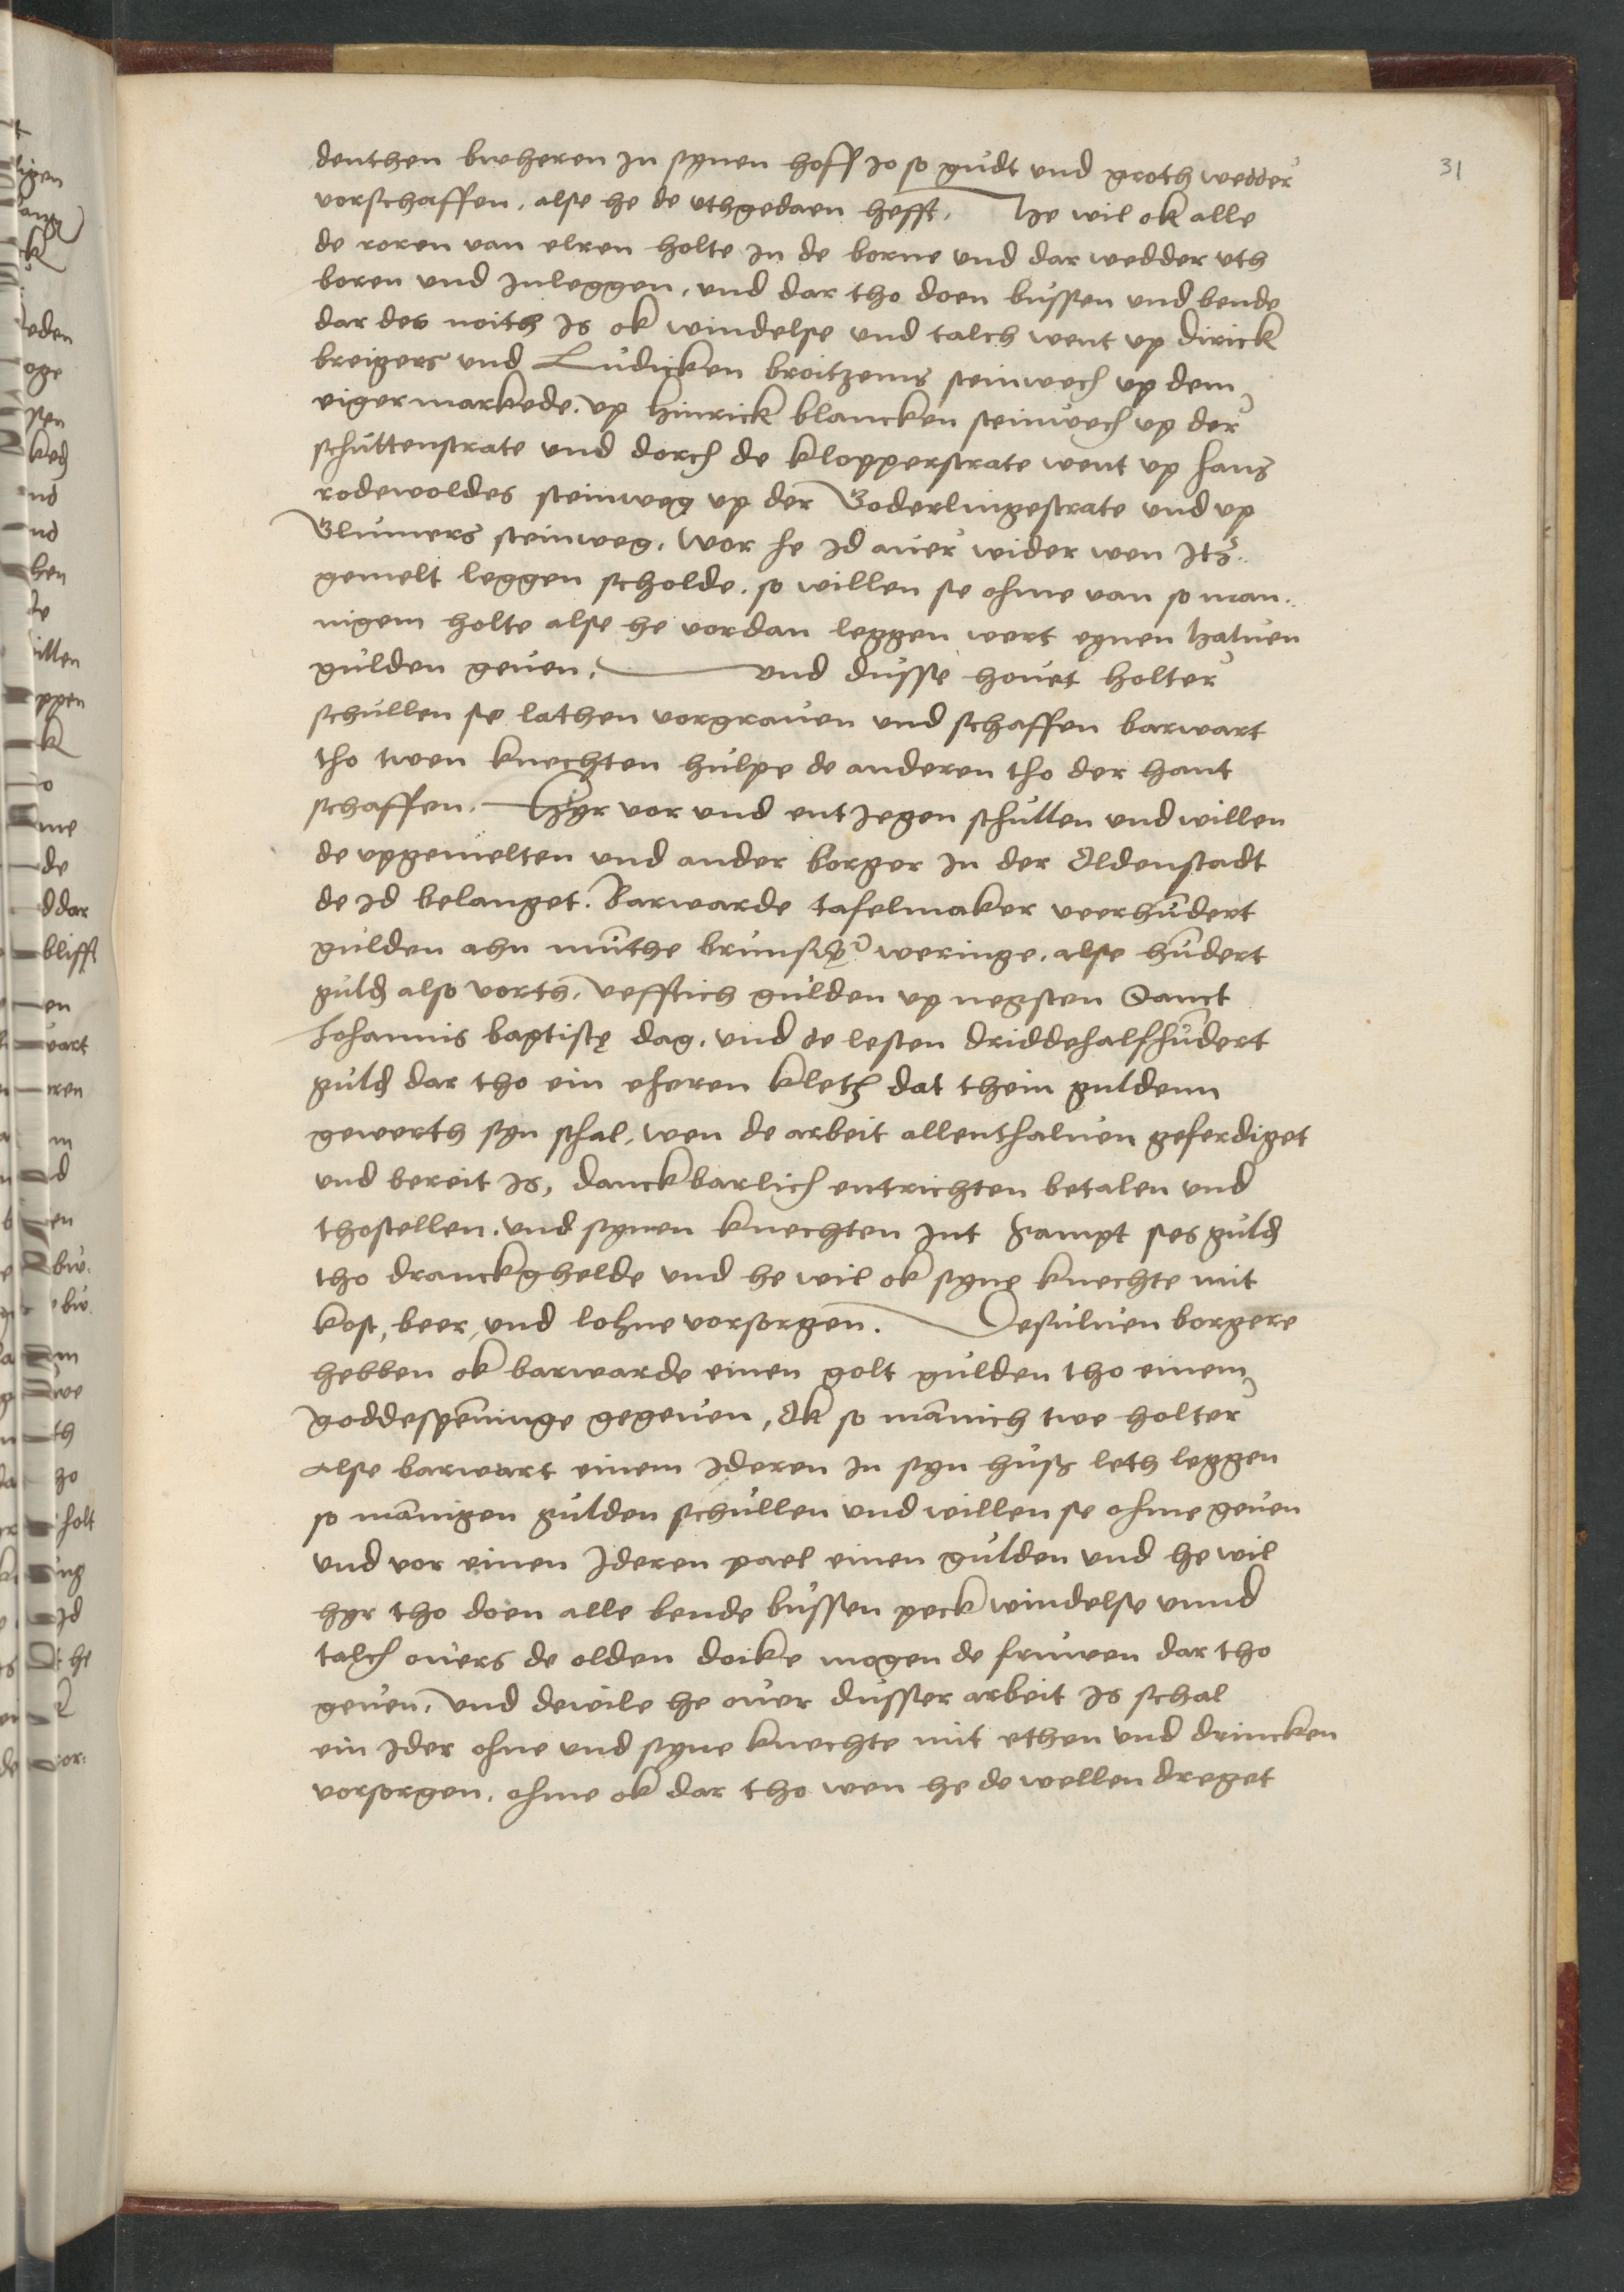 31
denthen bweheren in synen hoff jo so gudt und groth wedder
vorschaffen, alse he de uthgedaen hefft. He wil ok alle
de roren van elren holte in de borne und dar wedder uth
boren und Inleggen, und dar tho doen bussen und bende
dar des noith Is ok windelse und talch went up Dirick
breigers und Ludicken broitzems steinwech up dem
eigermarkede, up Hinrick blancken steinwech up der
schuttenstrate und dorch de klopperstrate went up hans
rodewoldes steinwegg up der Goderlingestrate und up
Glumers steinweg. Wor he Id auer wider wen Itz
gemelt leggen scholde, so willen se ohme van so man
nigem holte alse he vordan leggen wert eynen haluen
gulden geuen. und dusse houet holter
schullen se lathen vorgrauen und schaffen barwart
tho twen knechten hulpe de anderen tho der hant
schaffen. Hyr vor und entJegen schullen und willen
de upgemelten und ander borger In der Oldenstadt
de Id belanget. Barwarde tafelmaker veerhundert
gulden ahn munthe brunswͤ weringe, alse hundert
guld also vorth, vefftich gulden up negsten Sanct
Johannis baptistę dag, und de lesten driddehalfhundert
guld dar tho ein eheren kletz dat thein guldenn
gewerth syn schal, wen de arbeit allenthaluen geferdiget
und bereit Is, danckbarlich entrichten betalen und
thostellen, und synen knechten Int sampt ses guld
tho dranckghelde und he wil ok syne knechte mit
kost, beer, und lohne vorsorgen. Desuluen borgere
hebben ok barwarde einen golt gulden tho einem
goddespeninge gegeuen, Ok so manich twe holter
alse barwart einem Ideren In syn huss leth leggen
so mannigen gulden schullen und willen se ohme geuen
und vor einen Ideren pael einen gulden und he wil
hyr tho doen alle bende bussen peck windelse unnd
talch ouers de olden doike mogen de fruwen dar tho
geuen, und dewile he ouer dusser arbeit Is schal
ein Ider ohne und syne knechte mit ethen und drincken
vorsorgen, ohme ok dar tho wen he de wellen dreget